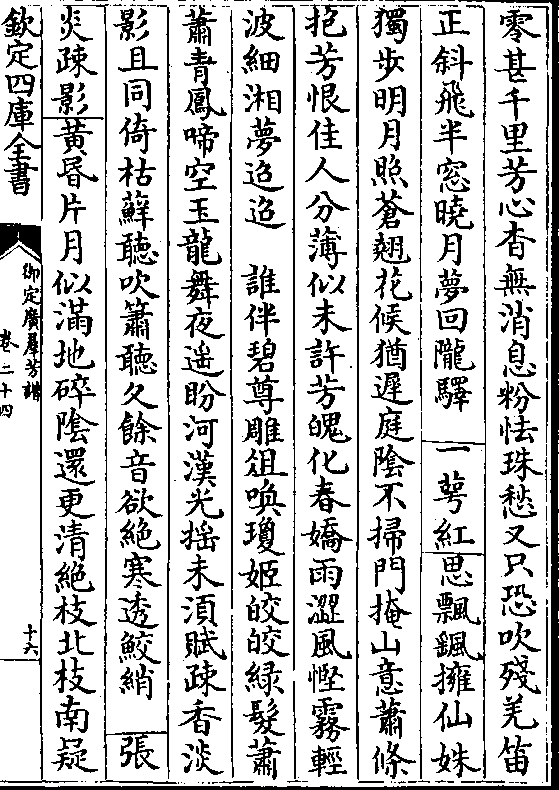 零甚千里芳心杳無消息粉怯珠愁又只恐吹殘羌笛
正斜飛半窓曉月夢回隴驛　一萼紅　思飄颻擁仙姝
獨步明月照蒼翹花候猶遲庭隂不掃門掩山意蕭條
抱芳恨佳人分薄似未許芳魄化春嬌雨澀風慳霧輕
波細湘夢迢迢　誰伴碧尊雕俎喚瓊姬皎皎綠髮蕭
蕭青鳳啼空玉龍舞夜遥盼河漢光摇未湏賦疎香淡
影且同倚枯蘚聽吹簫聽久餘音欲絶寒透鮫綃　張
炎疎影　黃昏片月似滿地碎隂還更清絶枝北枝南疑
欽定四庫全書
御定廣羣芳譜
卷二十四
十六